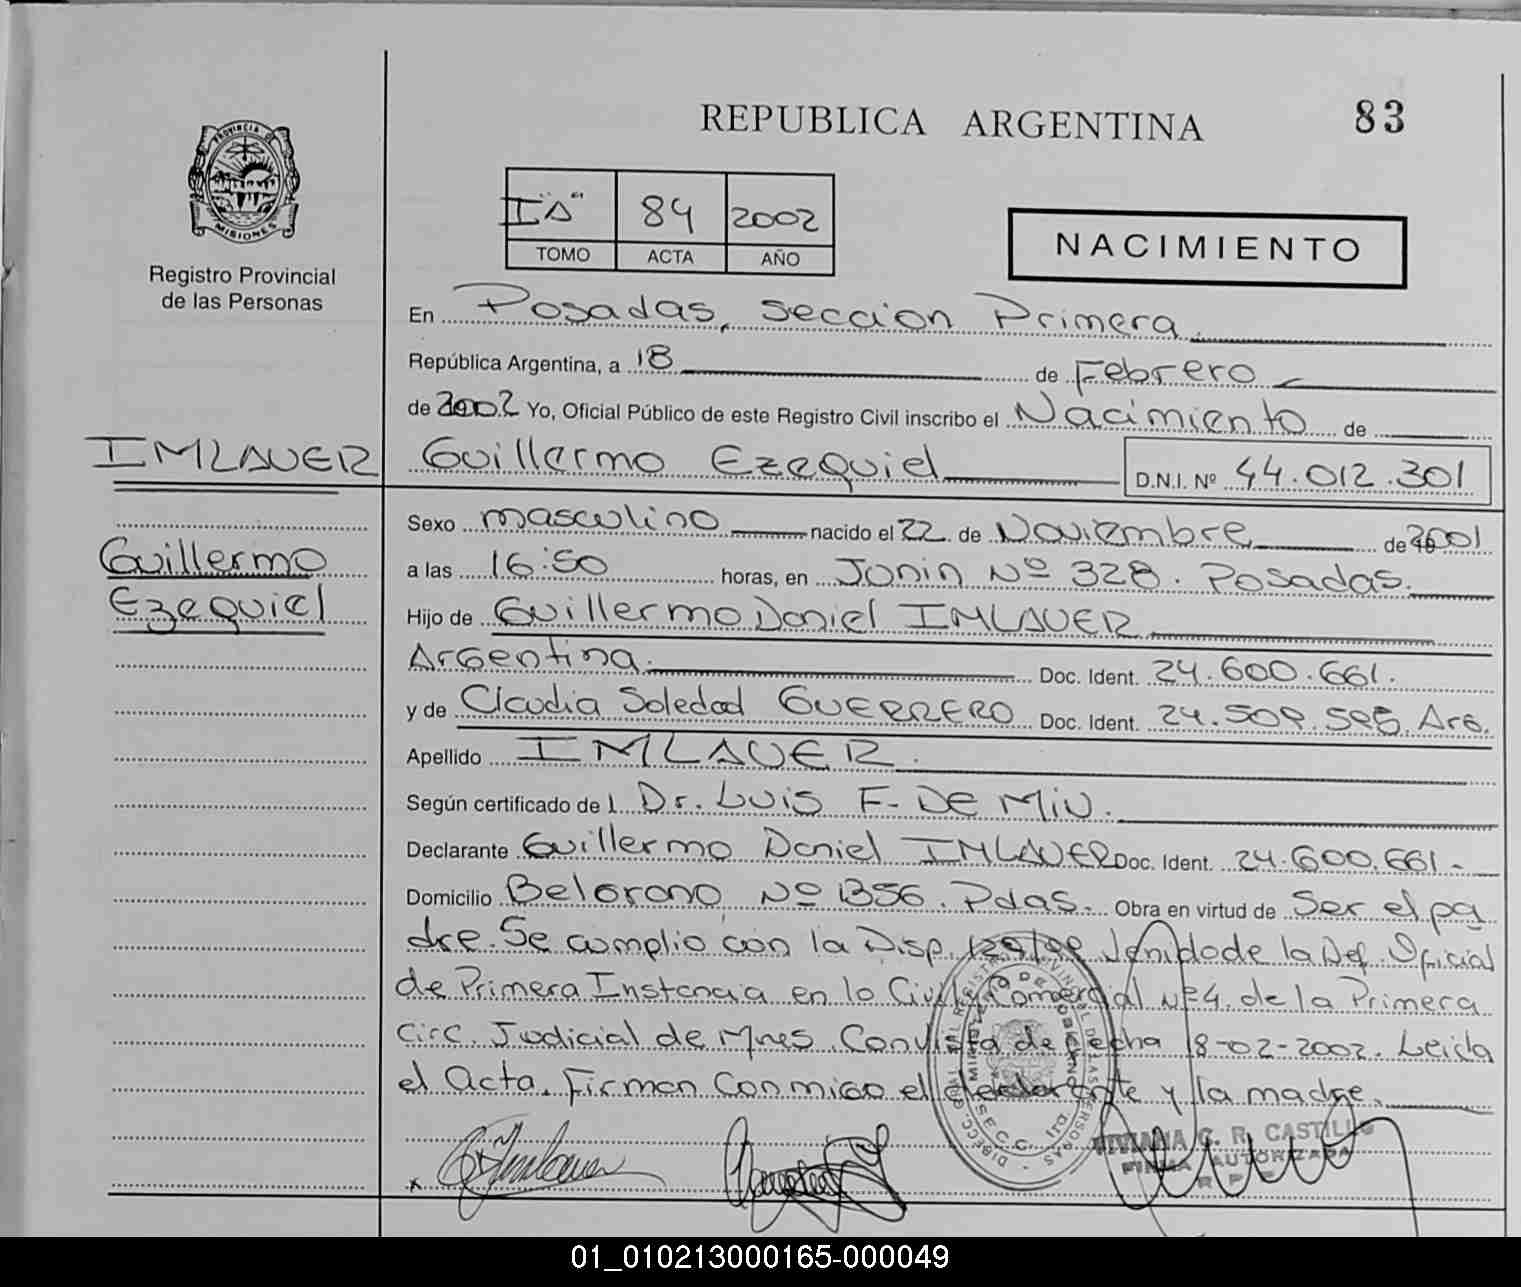 REPUBLICA ARGENTINA
83
PROVINCIA DE
MISIONES
Registro Provincial
de las Personas
I "A" 84 2002
TOMO ACTA AÑO
NACIMIENTO
En Posadas, Seccion Primera
República Argentina, a 18 de Febrero
de 2002 Yo, Oficial Público de este Registro Civil inscribo el Nacimiento de
IMLAUER
Guillermo Ezequiel D.N.I. Nº 44.012.301
Guillermo
Ezequiel
Sexo masculino nacido el 22 de Noviembre de 2001
a las 16:50 horas, en Junin Nº 328. Posadas.
Hijo de Guillermo Daniel IMLAUER
Argentina. Doc. Ident. 24.600.661.
y de Claudia Soledad GUERRERO Doc. Ident. 24.509.595. Arg.
Apellido IMLAUER.
Según certificado de l Dr. Luis F. DE Miu.
Declarante Guillermo Daniel IMLAUER Doc. Ident. 24.600.661.-
Domicilio Belgrano Nº 1356. Pdas. Obra en virtud de Ser el pa
dre. Se cumplio con la Disp. de la Def. Oficial
de Primera Instancia en lo Civil y Comercial Nº 4. de la Primera
Circ. Judicial de Mnes. Con Vista de fecha 18-02-2002. Leida
el Acta. Firman Conmigo el declarante y la madre.
VIVIANA C. R. CASTILLO
FIRMA AUTORIZADA
R P
01_010213000165-000049